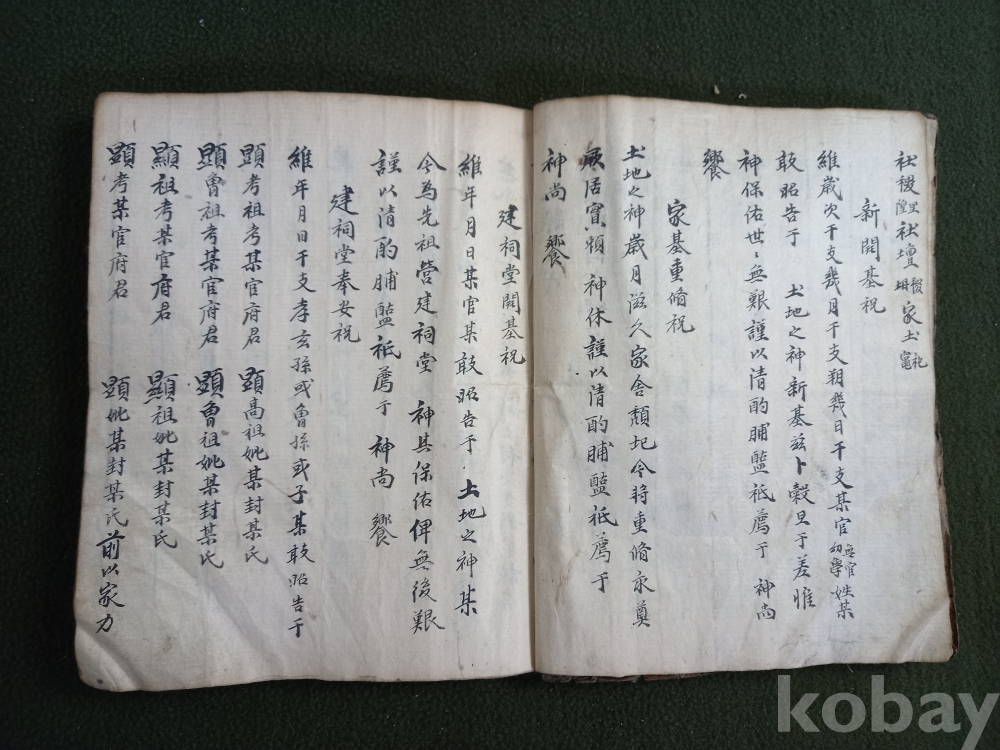 社稷 社壇 家土
新開基祝
維歲次干支幾月干支朔幾日干支某官 無官 幼學 姓某
敢昭告于 土地之神新基玆卜穀旦于差惟
神保佑世〻無艱謹以清酌脯醢祗薦于 神尚
饗
家基重脩祝
土地之神歲月滋久家舍頹圮今將重脩永奠
厥居實賴 神休謹以清酌脯醢祗薦于
神尚 饗
建祠堂開基祝
維年月日某官某敢昭告于 土地之神某
今為先祖營建祠堂 神其保佑俾無後艱
謹以清酌脯醢祗薦于 神尚 饗
建祠堂奉安祝
維年月日干支孝玄孫或曾孫或子某敢昭告于
顯考祖考某官府君 顯高祖妣某封某氏
顯曾祖考某官府君 顯曾祖妣某封某氏
顯祖考某官府君 顯祖妣某封某氏
顯考某官府君 顯妣某封某氏 前以家力
kobay